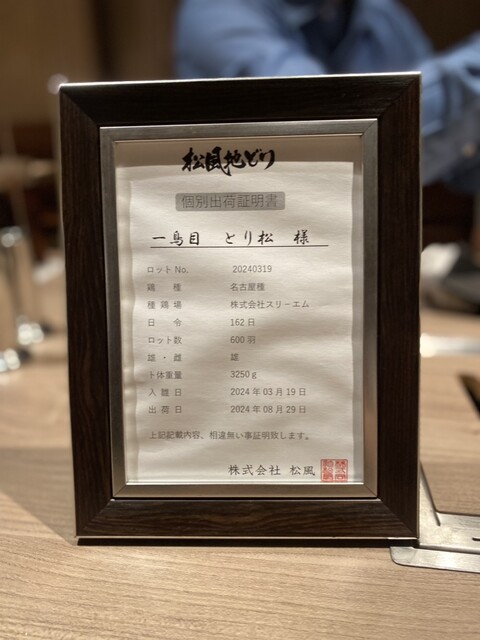 松風地どり
個別出荷証明書
一鳥目 とり松 様
ロットNo. 20240319
鶏種 名古屋種
種鶏場 株式会社スリーエム
日令 162日
ロット数 600羽
雄・雌 雄
ト体重量 3250g
入雛日 2024年03月19日
出荷日 2024年08月29日
上記記載内容、相違無い事証明致します。
株式会社 松風